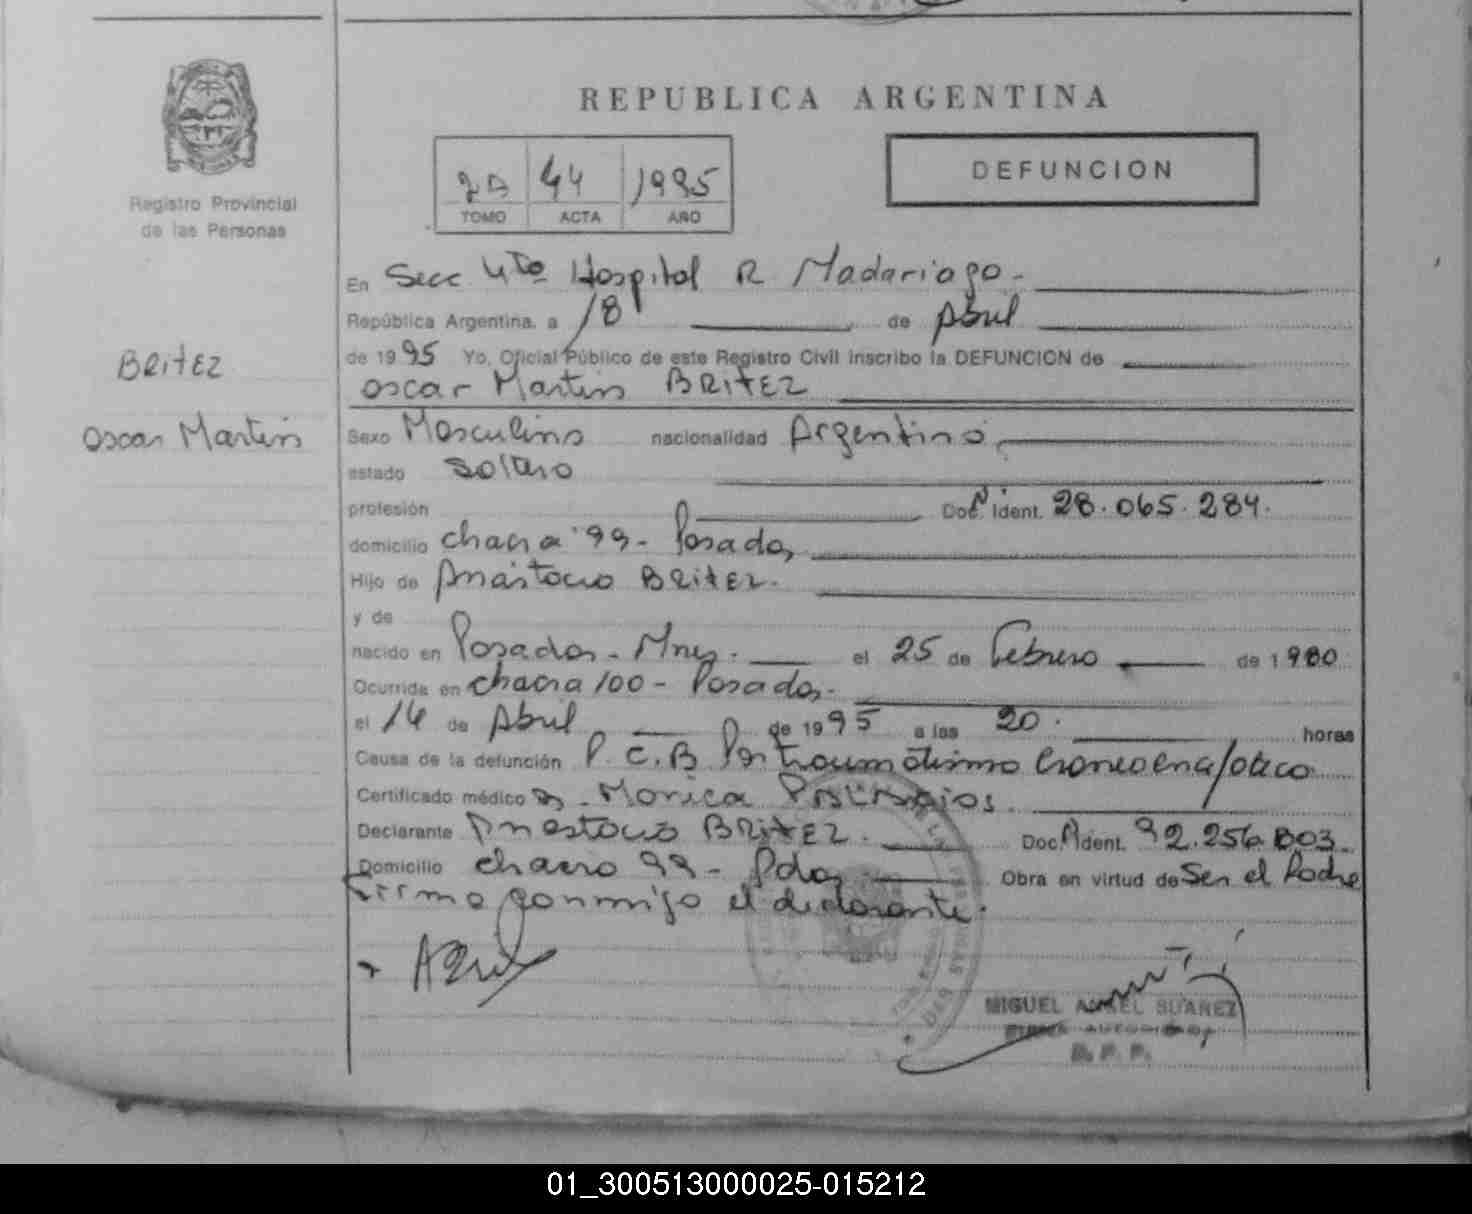 REPUBLICA ARGENTINA
DEFUNCION
Registro Provincial
de las Personas
44 1995
TOMO ACTA AÑO
En Secc 4to Hospital R Madariaga -
República Argentina, a 18 de Abril
de 1995 Yo, Oficial Público de este Registro Civil inscribo la DEFUNCION de
Oscar Martin BRITEZ
BRITEZ
Oscar Martin
Sexo Masculino nacionalidad Argentino
estado Soltero
profesión Doc. N Ident. 28.065.284.
domicilio chacra 99 - Posadas
Hijo de Anastacio BRITEZ.
y de
nacido en Posadas - Mnes. el 25 de Febrero de 1980
Ocurrida en chacra 100 - Posadas.
el 14 de Abril de 1995 a las 20. horas
Causa de la defunción P.C.B Por traumatismo Craneoencefalico
Certificado médico Monica
Declarante Anastacio BRITEZ. Doc. N Ident. 92.256.803.
Domicilio chacra 99 - Pdas Obra en virtud de Ser el Padre
Firma conmigo el declarante.
MIGUEL ANGEL SUAREZ
R. P. P.
01_300513000025-015212